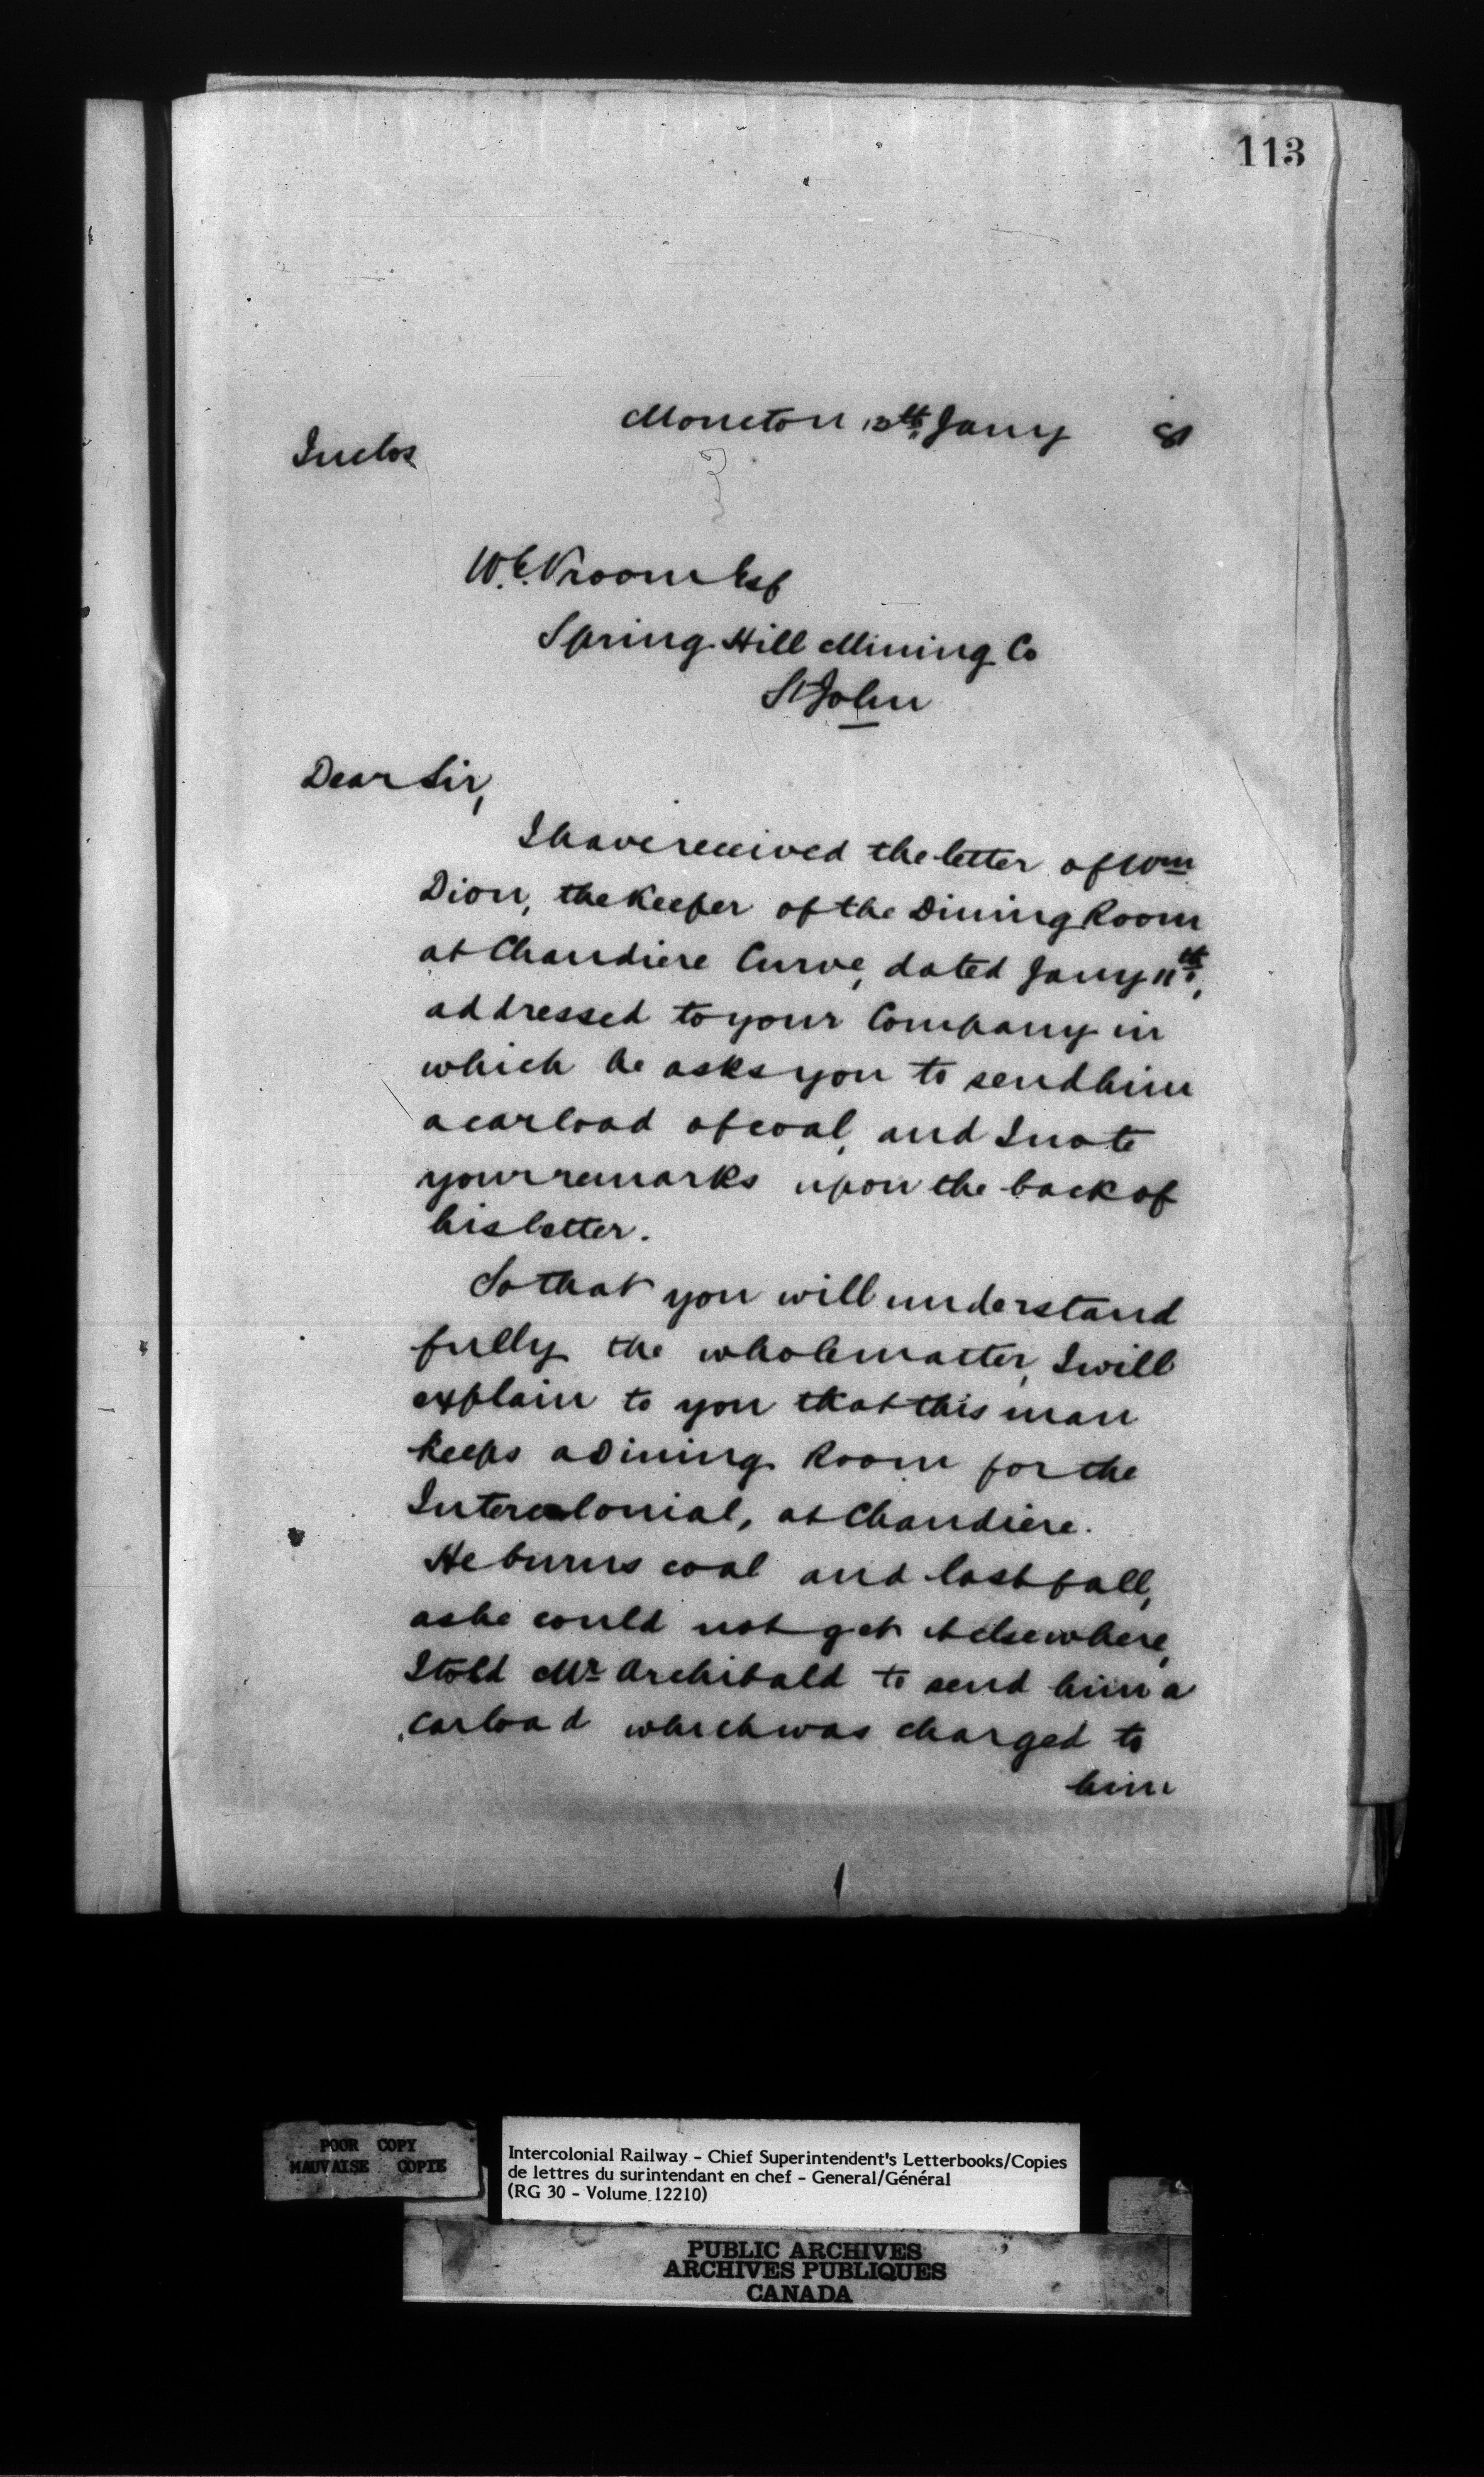 113
Moncton 13th Jany 81
Inclos
W.E. Vroom Esq
Spring Hill Mining Co
St John
Dear Sir,
I have received the letter of Wm
Dion, the Keeper of the Dining Room
at Chaudiere Curve, dated Jany 11th,
addressed to your Company in
which he asks you to send him
a carload of coal, and I note
your remarks upon the back of
his letter.
So that you will understand
fully the whole matter, I will
explain to you that this man
keeps a Dining Room for the
Intercolonial, at Chaudiere.
He burns coal and last fall,
as he could not get it elsewhere,
I told Mr Archibald to send him a
carload which was charged to
him
POOR COPY
MAUVAISE COPIE
Intercolonial Railway - Chief Superintendent's Letterbooks/Copies
de lettres du surintendant en chef - General/Général
(RG 30 - Volume 12210)
PUBLIC ARCHIVES
ARCHIVES PUBLIQUES
CANADA